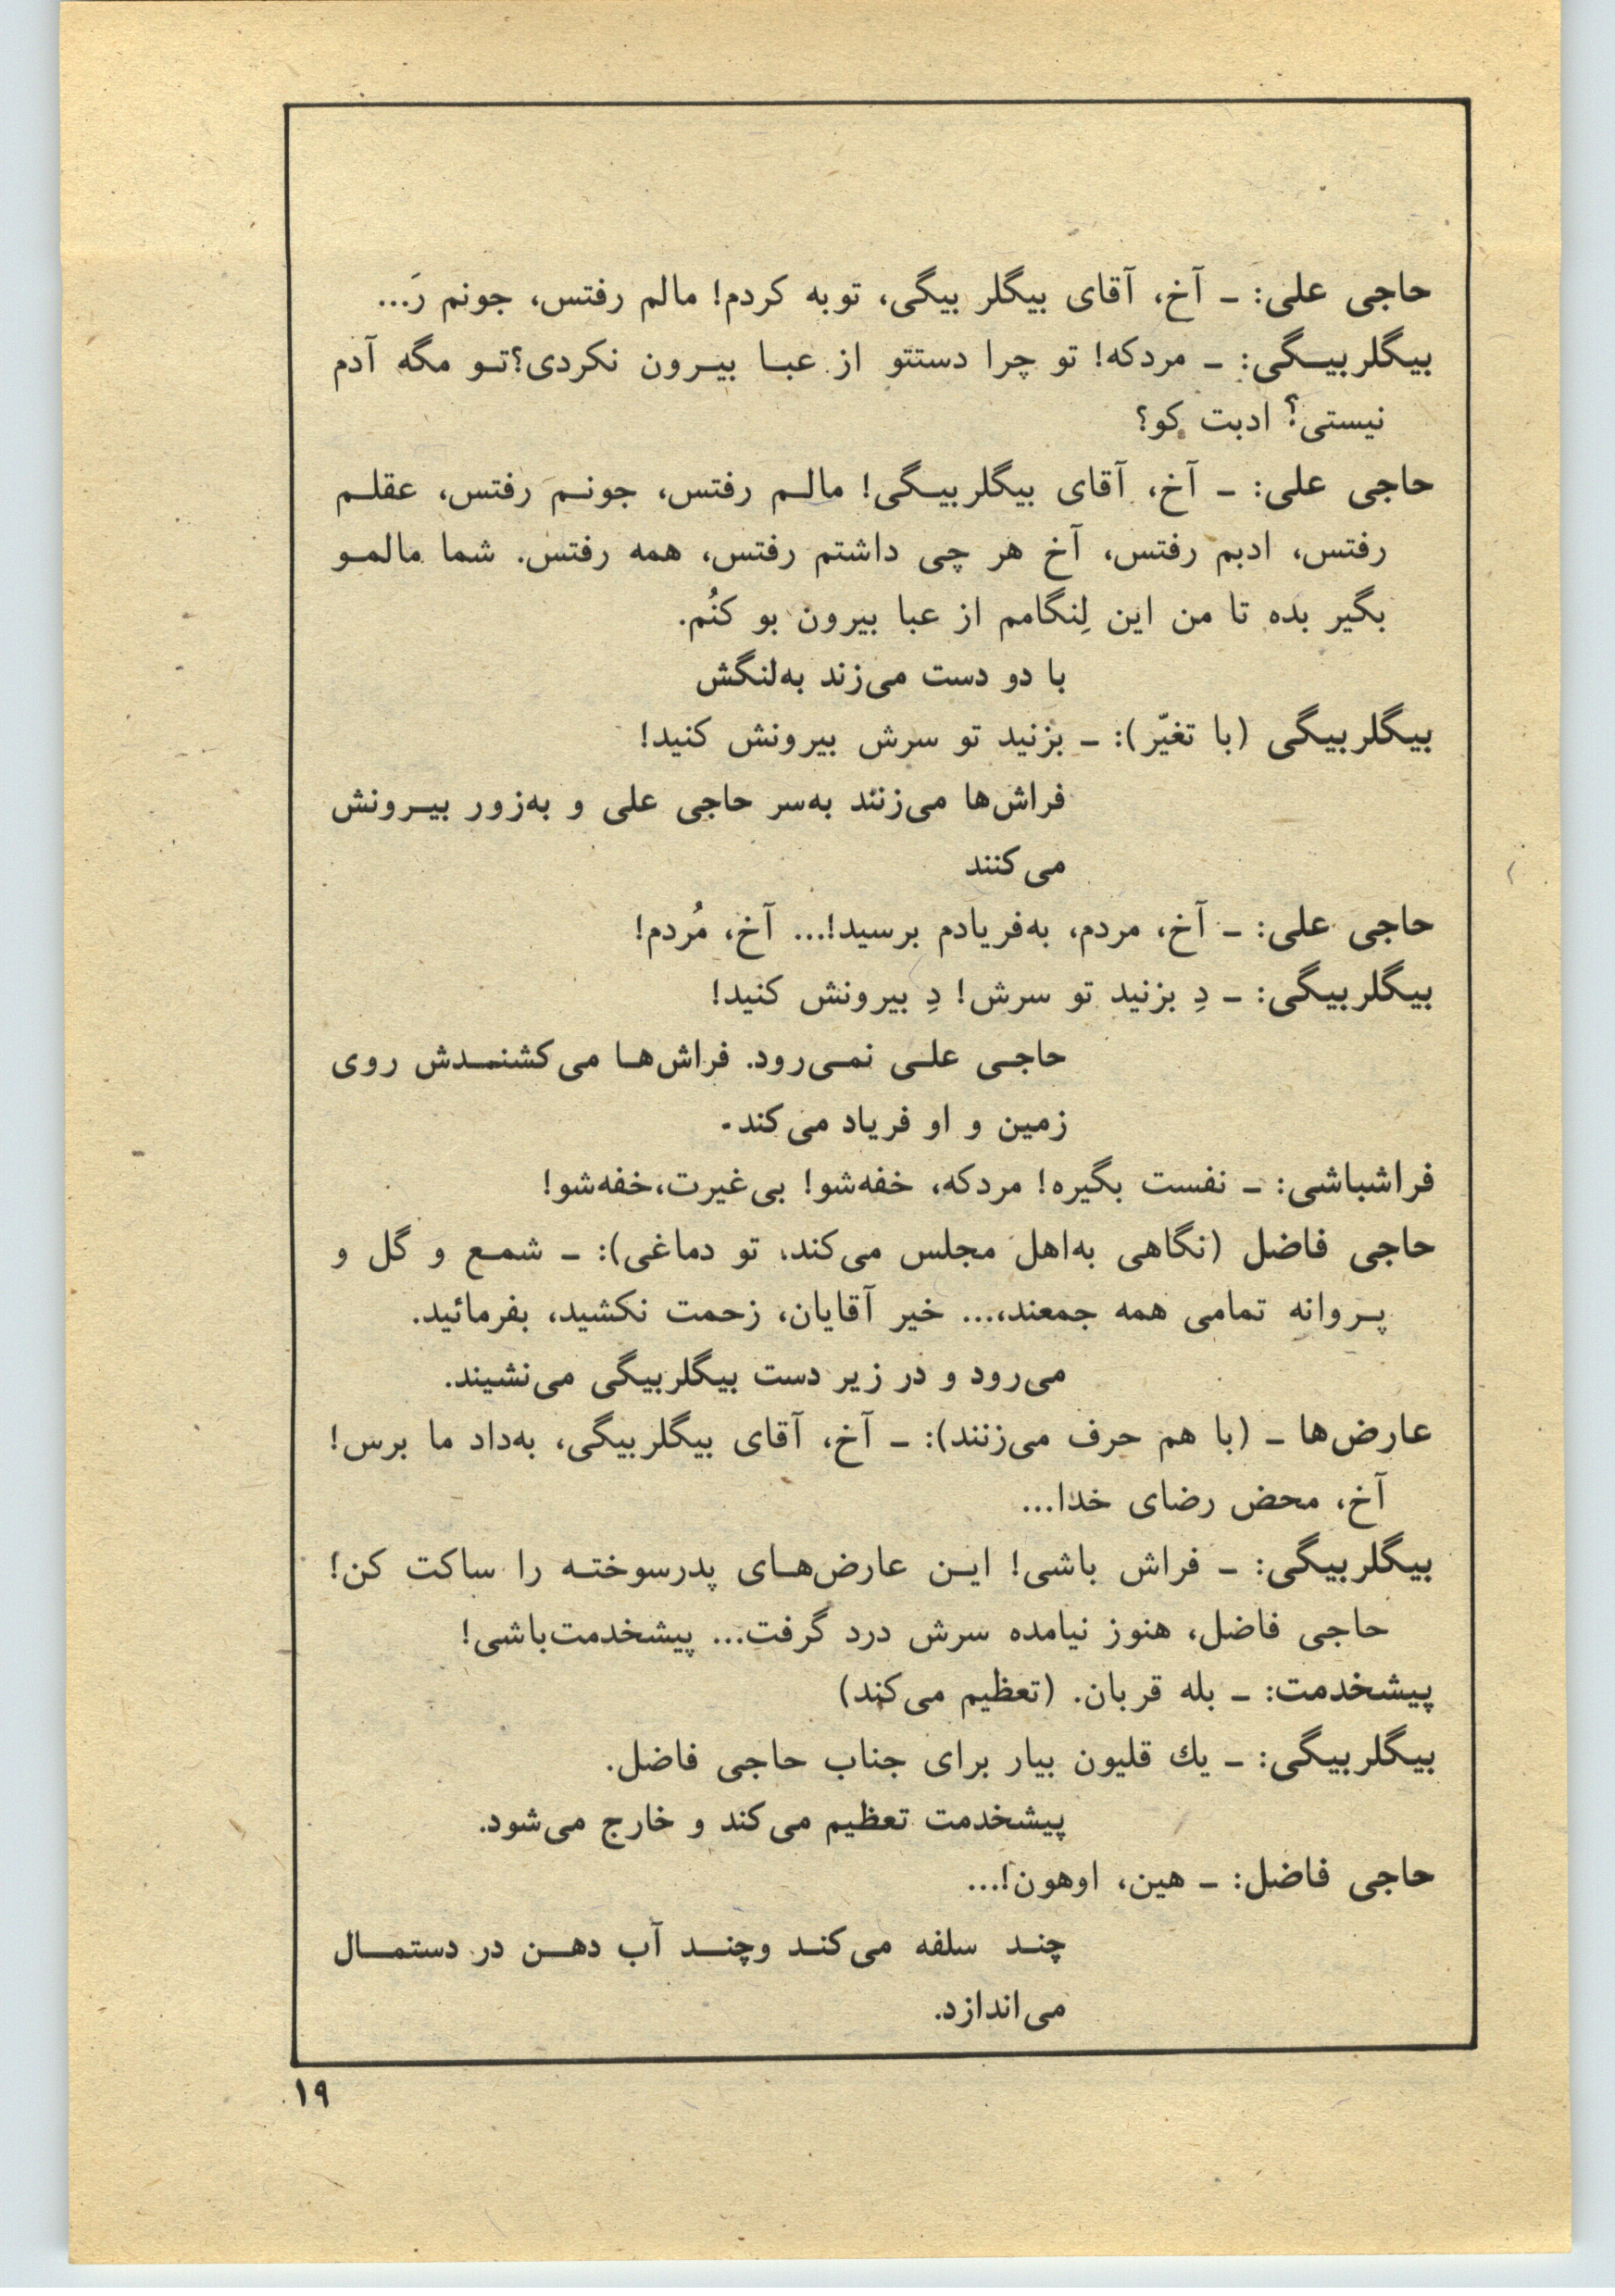 حاجی علی: ـ آخ، آقای بیگلر بیگی، توبه کردم! مالم رفتس، جونم رَ...
بیگلربیگی: ـ مردکه! تو چرا دستتو از عبا بیرون نکردی؟تو مگه آدم
نیستی؟ ادبت کو؟
حاجی علی: ـ آخ، آقای بیگلربیگی! مالم رفتس، جونم رفتس، عقلم
رفتس، ادبم رفتس، آخ هر چی داشتم رفتس، همه رفتس. شما مالمو
بگیر بده تا من این لِنگامم از عبا بیرون بو کنُم.
با دو دست می‌زند به‌لنگش
بیگلربیگی (با تغیّر): ـ بزنید تو سرش بیرونش کنید!
فراش‌ها می‌زنند به‌سر حاجی علی و به‌زور بیرونش
می‌کنند
حاجی علی: ـ آخ، مردم، به‌فریادم برسید!... آخ، مُردم!
بیگلربیگی: ـ دِ بزنید تو سرش! دِ بیرونش کنید!
حاجی علی نمی‌رود. فراش‌ها می‌کشنمدش روی
زمین و او فریاد می‌کند.
فراشباشی: ـ نفست بگیره! مردکه، خفه‌شو! بی‌غیرت،خفه‌شو!
حاجی فاضل (نگاهی به‌اهل مجلس می‌کند، تو دماغی): ـ شمع و گل و
پروانه تمامی همه جمعند،... خیر آقایان، زحمت نکشید، بفرمائید.
می‌رود و در زیر دست بیگلربیگی می‌نشیند.
عارض‌ها ـ (با هم حرف می‌زنند): ـ آخ، آقای بیگلربیگی، به‌داد ما برس!
آخ، محض رضای خدا...
بیگلربیگی: ـ فراش باشی! این عارض‌های پدرسوخته را ساکت کن!
حاجی فاضل، هنوز نیامده سرش درد گرفت... پیشخدمت‌باشی!
پیشخدمت: ـ بله قربان. (تعظیم می‌کند)
بیگلربیگی: ـ یك قلیون بیار برای جناب حاجی فاضل.
پیشخدمت تعظیم می‌کند و خارج می‌شود.
حاجی فاضل: ـ هین، اوهون!...
چند سلفه می‌کند وچند آب دهن در دستمال
می‌اندازد.
۱۹